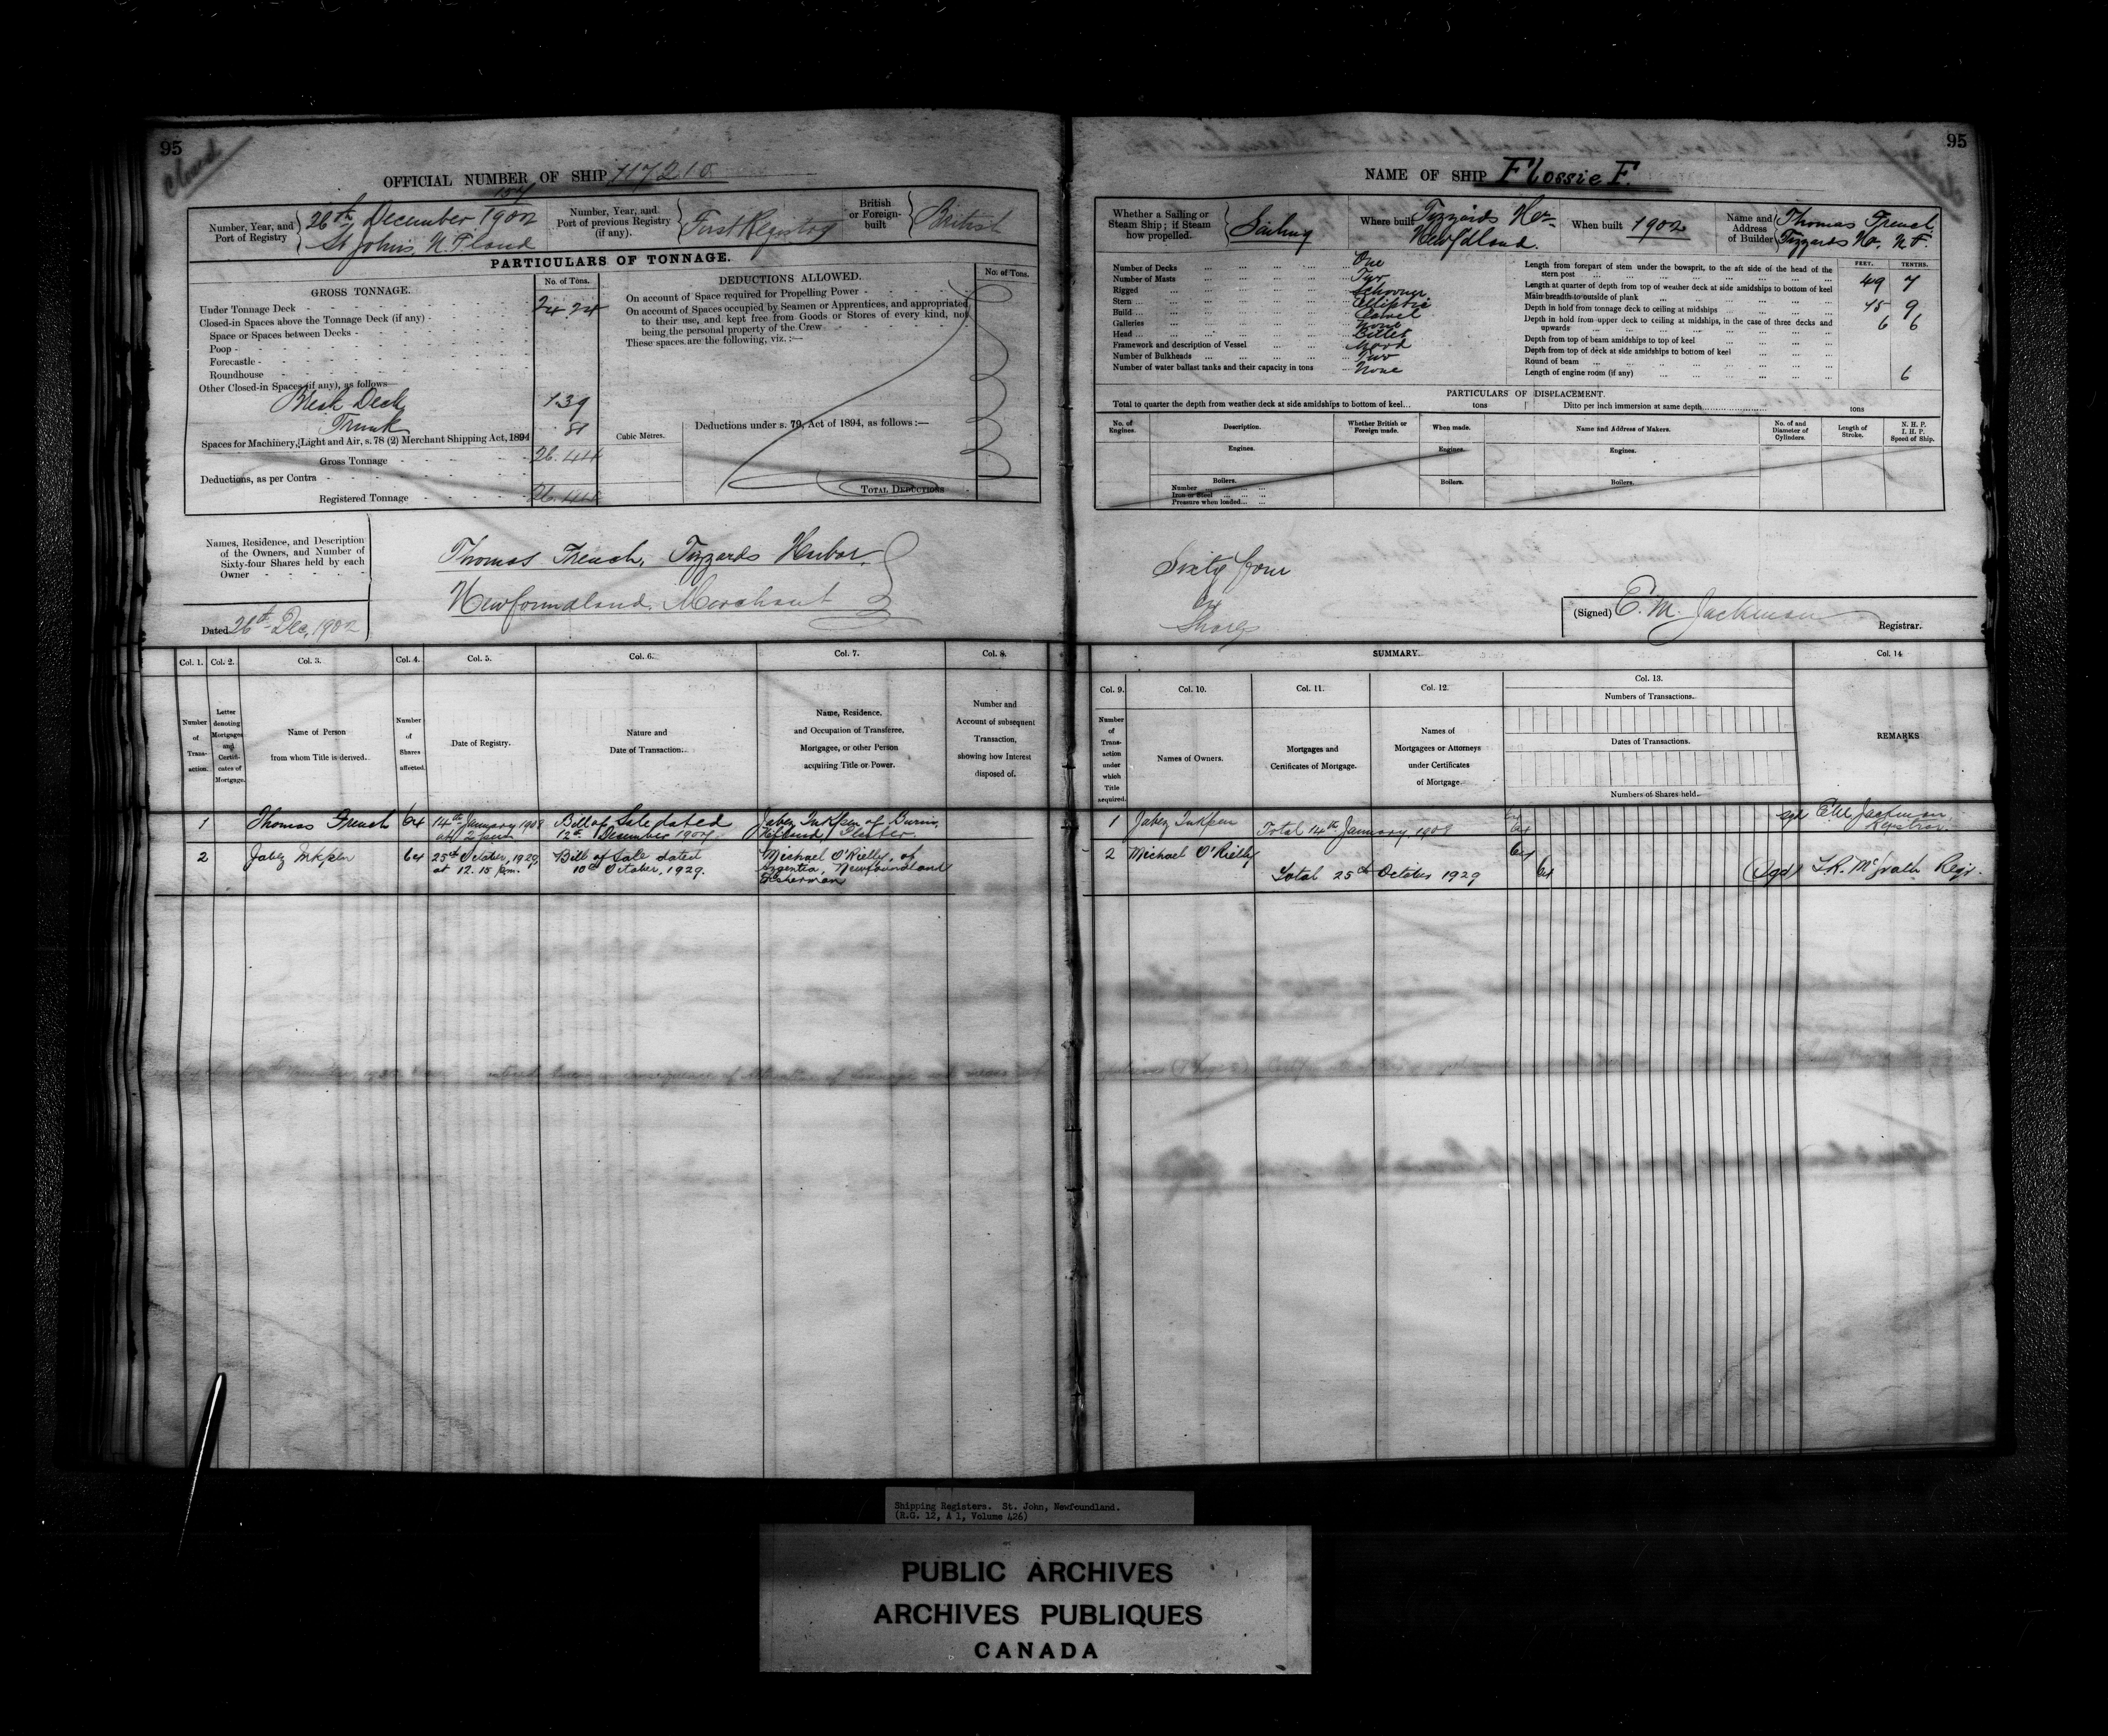 95
Closed
OFFICIAL NUMBER OF SHIP 117210
Number, Year, and Port of Registry
26th December 1902
St Johns, N. F. land
Number, Year, and Port of previous Registry (if any).
First Registry
British or Foreign-built
British
PARTICULARS OF TONNAGE.
GROSS TONNAGE.
No. of Tons.
Under Tonnage Deck 24.24
Closed-in Spaces above the Tonnage Deck (if any)
Space or Spaces between Decks
Poop
Forecastle
Roundhouse
Other Closed-in Spaces (if any), as follows
Break Deck 1.39
Trunk .81
Spaces for Machinery, Light and Air, s. 78 (2) Merchant Shipping Act, 1894
Gross Tonnage 26.44
Deductions, as per Contra
Registered Tonnage 26.44
DEDUCTIONS ALLOWED.
No. of Tons.
On account of Space required for Propelling Power
On account of Spaces occupied by Seamen or Apprentices, and appropriated
to their use, and kept free from Goods or Stores of every kind, not
being the personal property of the Crew
These spaces are the following, viz. :—
Cubic Metres.
Deductions under s. 79, Act of 1894, as follows :—
TOTAL DEDUCTIONS
Names, Residence, and Description
of the Owners, and Number of
Sixty-four Shares held by each
Owner
Thomas French, Tizzards Harbor,
Newfoundland. Merchant
Dated 26th Dec, 1902
Col. 1. Col. 2. Col. 3. Col. 4. Col. 5. Col. 6. Col. 7. Col. 8.
Number of Transaction.
Letter denoting Mortgages and Certificates of Mortgage.
Name of Person from whom Title is derived.
Number of Shares affected.
Date of Registry.
Nature and Date of Transaction.
Name, Residence, and Occupation of Transferee, Mortgagee, or other Person acquiring Title or Power.
Number and Account of subsequent Transaction, showing how Interest disposed of.
1 Thomas French 64 14th January 1908 Bill of Sale dated Jabez Inkpen of Burin,
12th December 1907
2 Jabez Inkpen 64 25th October, 1929, Bill of Sale dated Michael O'Rielly, of
at 12.15 p.m. 10th October, 1929. Argentia, Newfoundland
Fisherman
95
NAME OF SHIP Flossie F.
Whether a Sailing or Steam Ship; if Steam how propelled.
Sailing
Where built
Tizzards Hr.
Newfdland.
When built 1902
Name and Address of Builder
Thomas French,
Tizzards Hr. N F.
Number of Decks One
Number of Masts Two
Rigged Schooner
Stern Elliptic
Build Carvel
Galleries None
Head Billet
Framework and description of Vessel Wood
Number of Bulkheads Two
Number of water ballast tanks and their capacity in tons None
FEET. TENTHS.
Length from forepart of stem under the bowsprit, to the aft side of the head of the
stern post 49 7
Length at quarter of depth from top of weather deck at side amidships to bottom of keel
Main breadth to outside of plank 15 9
Depth in hold from tonnage deck to ceiling at midships 6 6
Depth in hold from upper deck to ceiling at midships, in the case of three decks and
upwards
Depth from top of beam amidships to top of keel
Depth from top of deck at side amidships to bottom of keel
Round of beam 6
Length of engine room (if any)
PARTICULARS OF DISPLACEMENT.
Total to quarter the depth from weather deck at side amidships to bottom of keel... tons
Ditto per inch immersion at same depth tons
No. of Engines.
Description.
Whether British or Foreign made.
When made.
Name and Address of Makers.
No. of and Diameter of Cylinders.
Length of Stroke.
N. H. P.
I. H. P.
Speed of Ship.
Engines. Engines. Engines.
Boilers. Boilers. Boilers.
Number
Iron or Steel
Pressure when loaded
Sixty four
64
Shares
(Signed) E. M. Jackman
Registrar.
SUMMARY.
Col. 9. Col. 10. Col. 11. Col. 12. Col. 13. Col. 14
Number of Transaction under which Title acquired.
Names of Owners.
Mortgages and Certificates of Mortgage.
Names of Mortgagees or Attorneys under Certificates of Mortgage.
Numbers of Transactions.
Dates of Transactions.
Numbers of Shares held.
REMARKS
1 Jabez Inkpen 64 sgd E M Jackman
Total 14th January 1908 64 Registrar.
2 Michael O'Rielly 64
Total 25th October 1929 64 (Sgd) Regr.
Shipping Registers. St. John, Newfoundland.
(R.G. 12, A 1, Volume 426)
PUBLIC ARCHIVES
ARCHIVES PUBLIQUES
CANADA